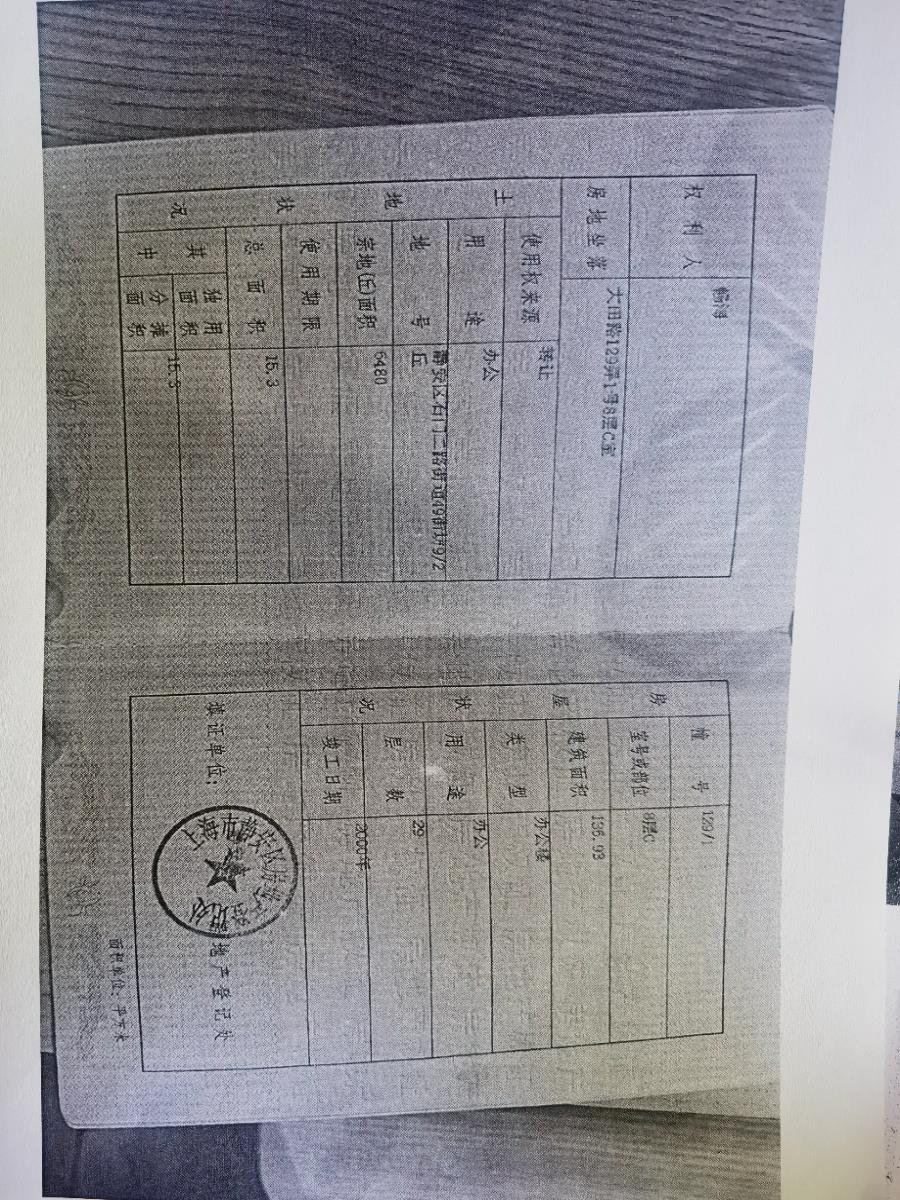 权利人
房地坐落 大田路129弄1号8层C室
土地状况
使用权来源 转让
用途 办公
地号 静安区石门二路街道49街坊9/2
丘
宗地(丘)面积 6480
使用期限
总面积 15.3
其中
独用面积
分摊面积 15.3
房屋状况
幢号 129/1
室号或部位 8层C
建筑面积 136.93
类型 办公楼
用途 办公
层数 29
竣工日期 2000年
填证单位:
上海市静安区房地产登记处
面积单位:平方米